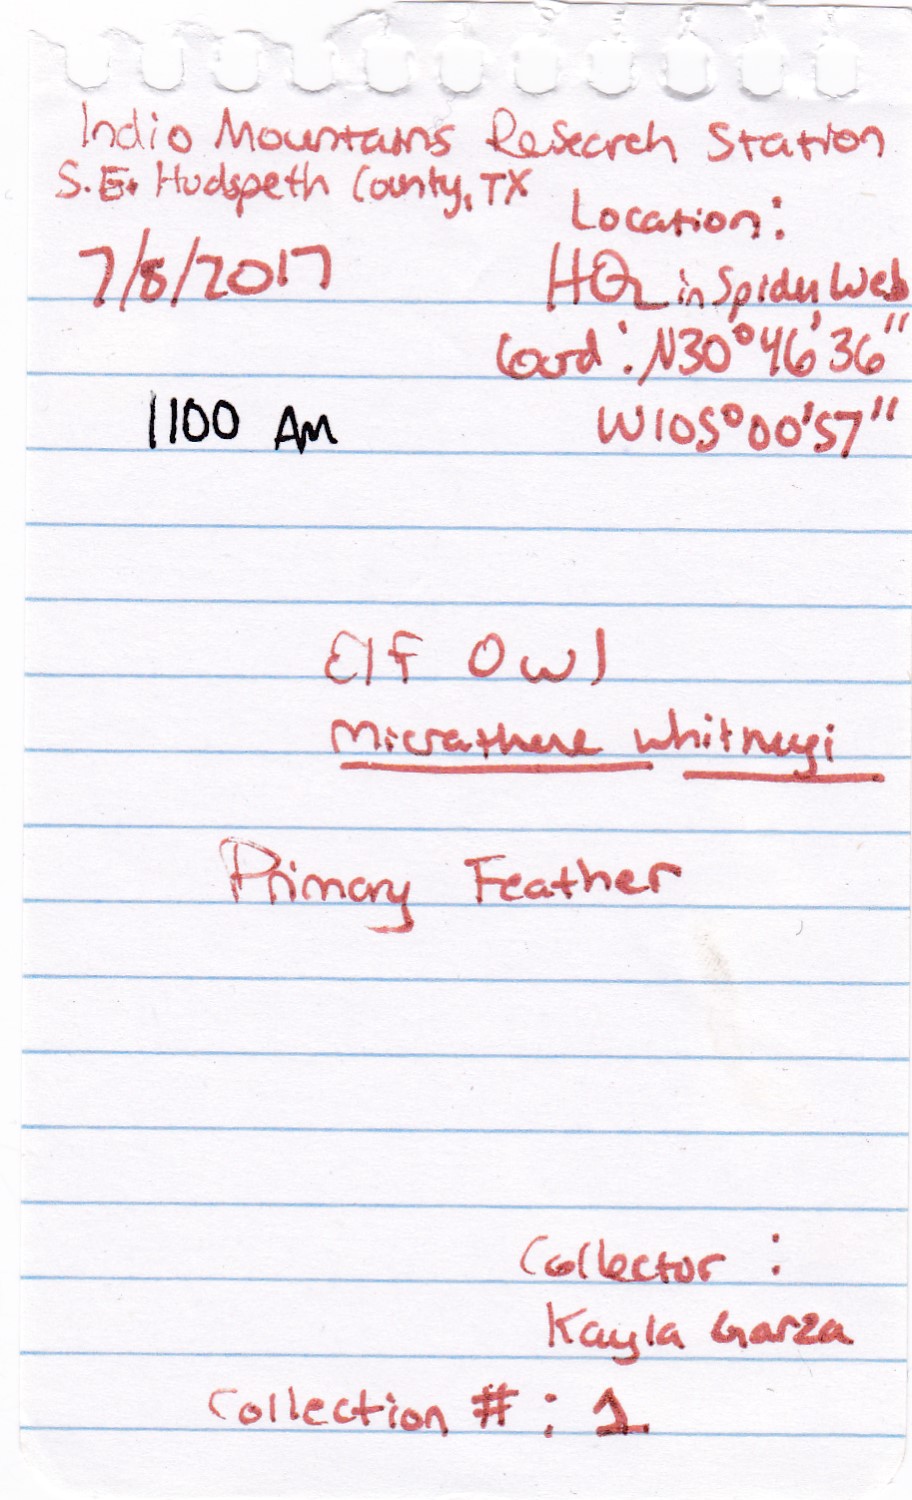 Indio Mountains Research Station
S.E. Hudspeth County, TX
Location:
7/8/2017
HQ in Spider Web
Coord: N30°46'36"
1100 AM
W105°00'57"
Elf Owl
Micrathene whitneyi
Primary Feather
Collector :
Kayla Garza
Collection #: 1